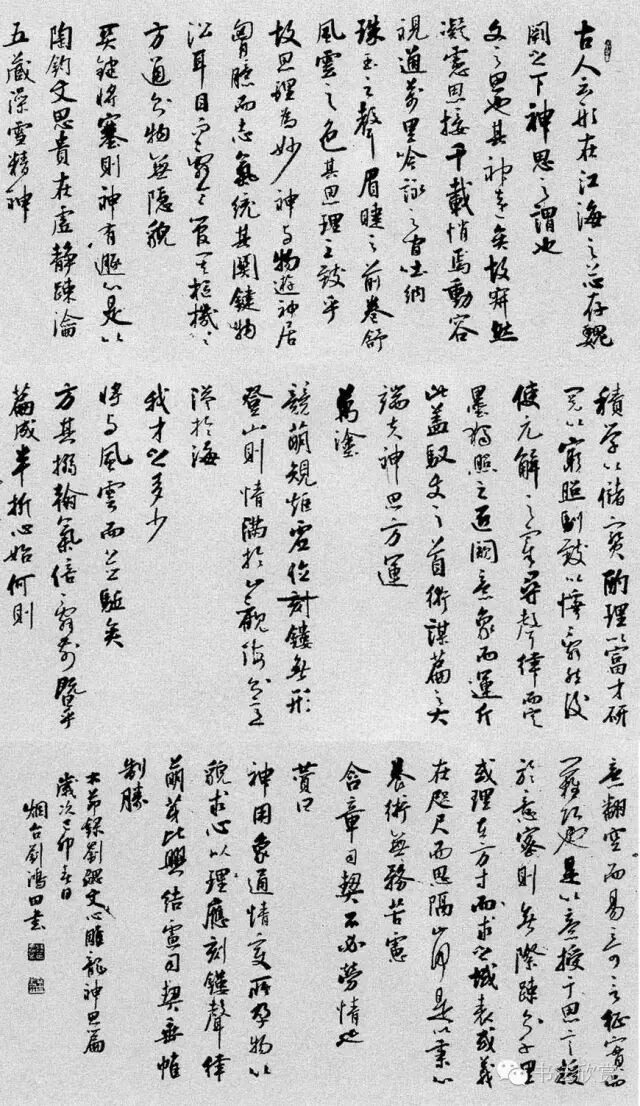 古人云形在江海之上心存魏
闕之下神思之謂也
文之思也其神遠矣故寂然
凝慮思接千載悄焉動容
視通萬里吟詠之間吐納
珠玉之聲眉睫之前卷舒
風雲之色其思理之致乎
故思理為妙神與物遊神居
胷臆而志氣統其關鍵物
沿耳目而辭令管其樞機
方通則物無隱貌
關鍵將塞則神有遯心是以
陶鈞文思貴在虛靜疎瀹
五藏澡雪精神
積學以儲寶酌理以富才研
閱以窮照馴致以懌辭然後
使元解之宰尋聲律而定
墨獨照之匠闚意象而運斤
此蓋馭文之首術謀篇之大
端夫神思方運
萬塗
競萌規矩虛位刻鏤無形
登山則情滿於山觀海則意
溢於海
我才之多少
將與風雲而並驅矣
方其搦翰氣倍辭前暨乎
篇成半折心始何則
意翻空而易奇言征實而
難巧也是以意授于思言授
於意密則無際疎則千里
或理在方寸而求之域表或義
在咫尺而思隔山河是以秉心
養術無務苦慮
含章司契不必勞情也
贊曰
神用象通情變所孕物以
貌求心以理應刻鏤聲律
萌芽比興結慮司契垂帷
制勝
右節錄劉勰文心雕龍神思篇
歲次己卯春日
烟台劉鴻田書
书法欣赏